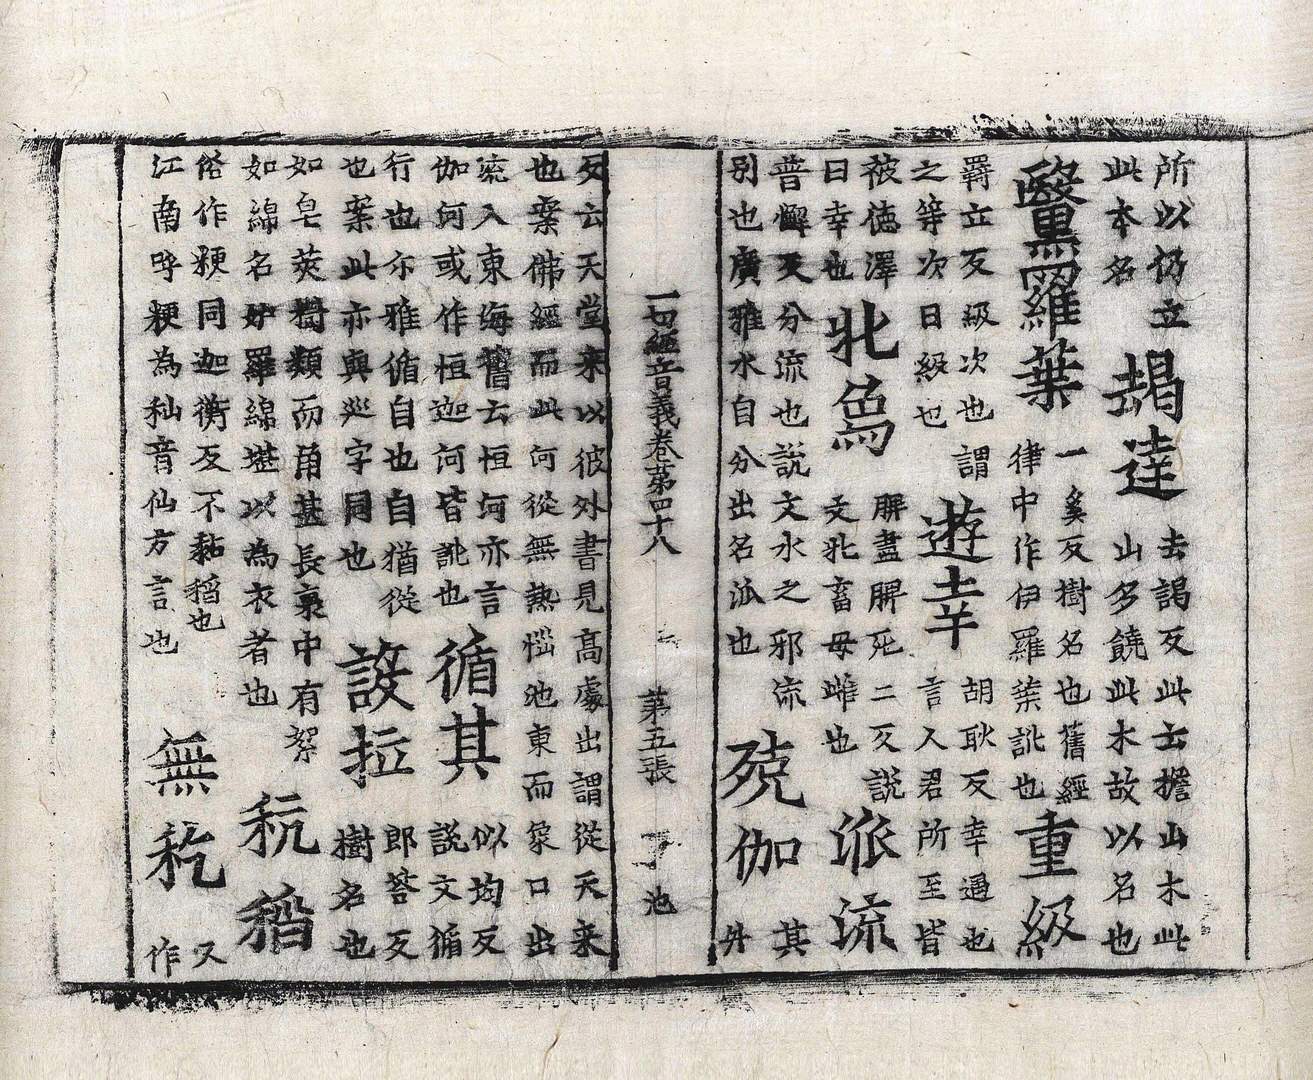 所以仍立此本名朅達去謁反此云擔山木此山多饒此木故以名也
瞖羅葉一奚反樹名也舊經律中作伊羅葉訛也重級
羇立反級次也謂之等次曰級也遊幸胡耿反幸遇也言人君所至皆
被德澤曰幸也牝烏脾盡脾死二反說文牝畜母雌也派流
普懈反分流也說文水之邪流別也廣雅水自分出名派也殑伽其廾
一切經音義卷第四十八 第五張 池
反云天堂來以彼外書見高處出謂從天來也案佛經而此河從無熱惱池東面象口出
流入東海舊云恒河亦言伽河或作恒迦河皆訛也循其似均反說文循
行也尒雅循自也自猶從也案此亦與巡字同也設拉郎荅反樹名也
如皂莢樹類而角甚長裹中有絮如綿名妒羅綿堪以為衣者也秔稻
俗作粳同迦衡反不黏稻也江南呼粳為秈音仙方言也無又作